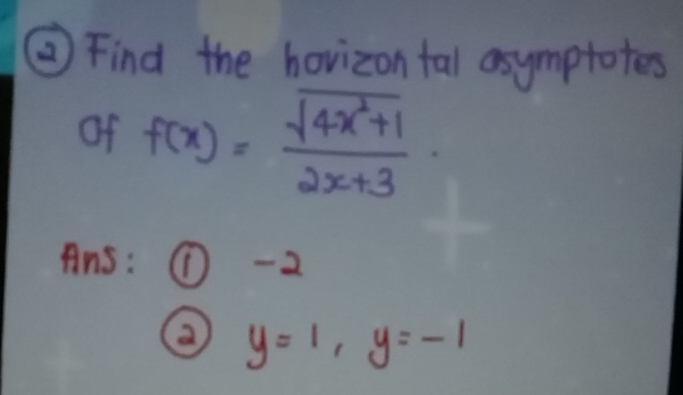 ② Find the horizontal asymptotes
Of f(x) = √4x²+1 / 2x+3 .
Ans: ① -2
② y=1, y=-1